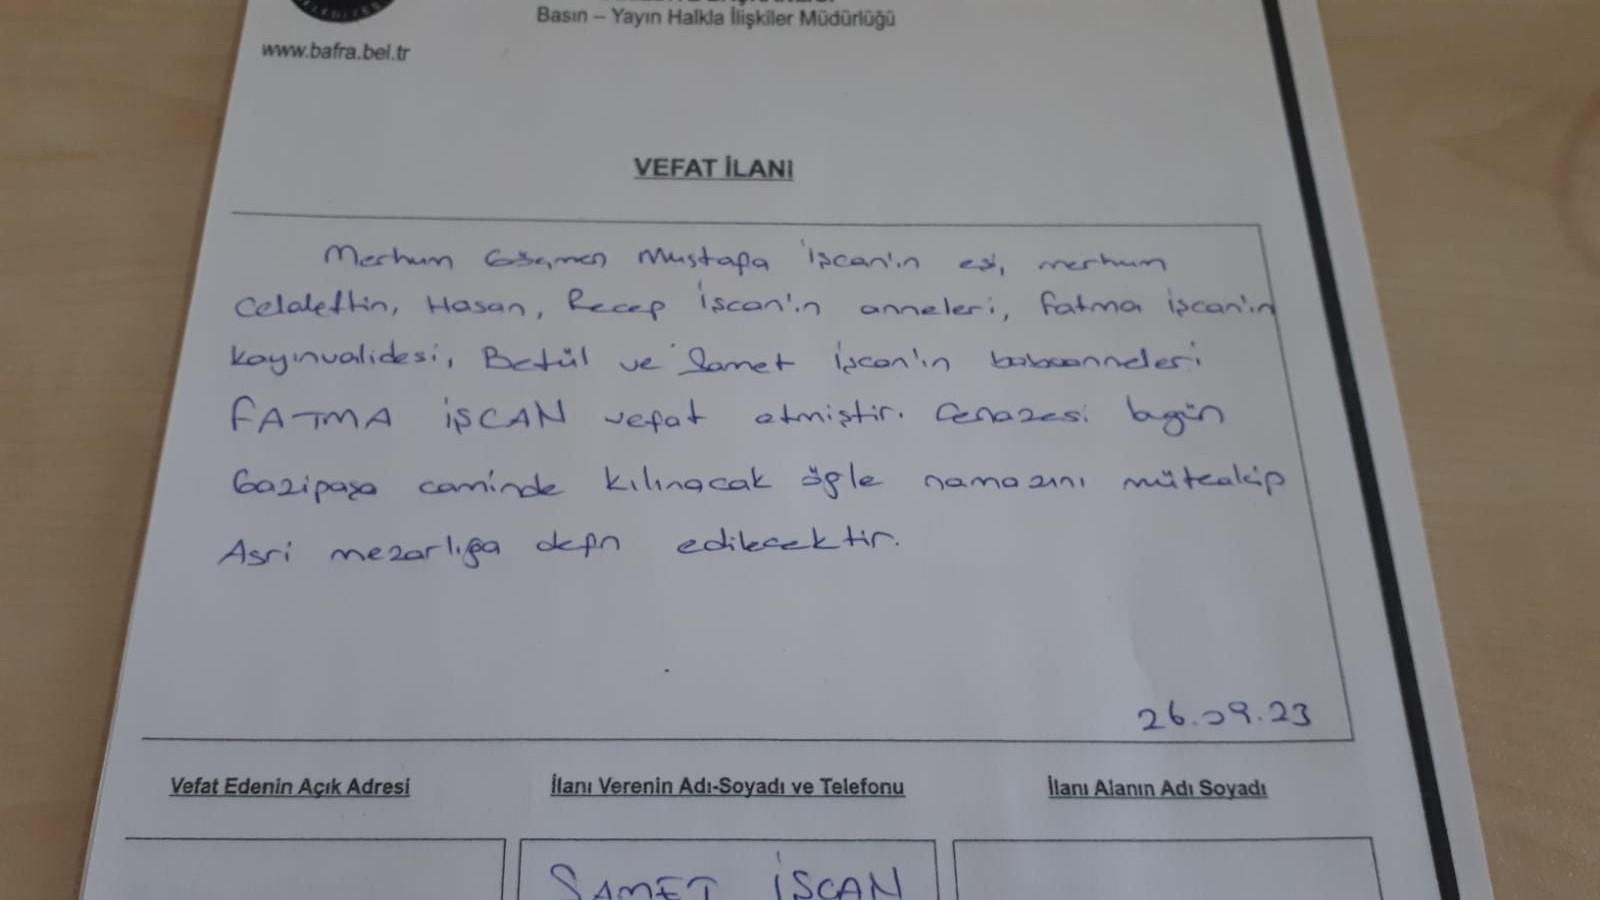 BELEDİYESİ
Basın – Yayın Halkla İlişkiler Müdürlüğü
www.bafra.bel.tr
VEFAT İLANI
Merhum Göçmen Mustafa İşcan'ın eşi, merhum
Celalettin, Hasan, Recep İşcan'ın anneleri, Fatma işcan'ın
kayınvalidesi, Betül ve Samet işcan'ın babaanneleri
FATMA İŞCAN vefat etmiştir. Cenazesi bugün
Gazipaşa caminde kılınacak öğle namazını müteakip
Asri mezarlığa defn edilecektir.
26.09.23
Vefat Edenin Açık Adresi
İlanı Verenin Adı-Soyadı ve Telefonu
İlanı Alanın Adı Soyadı
SAMET İSCAN